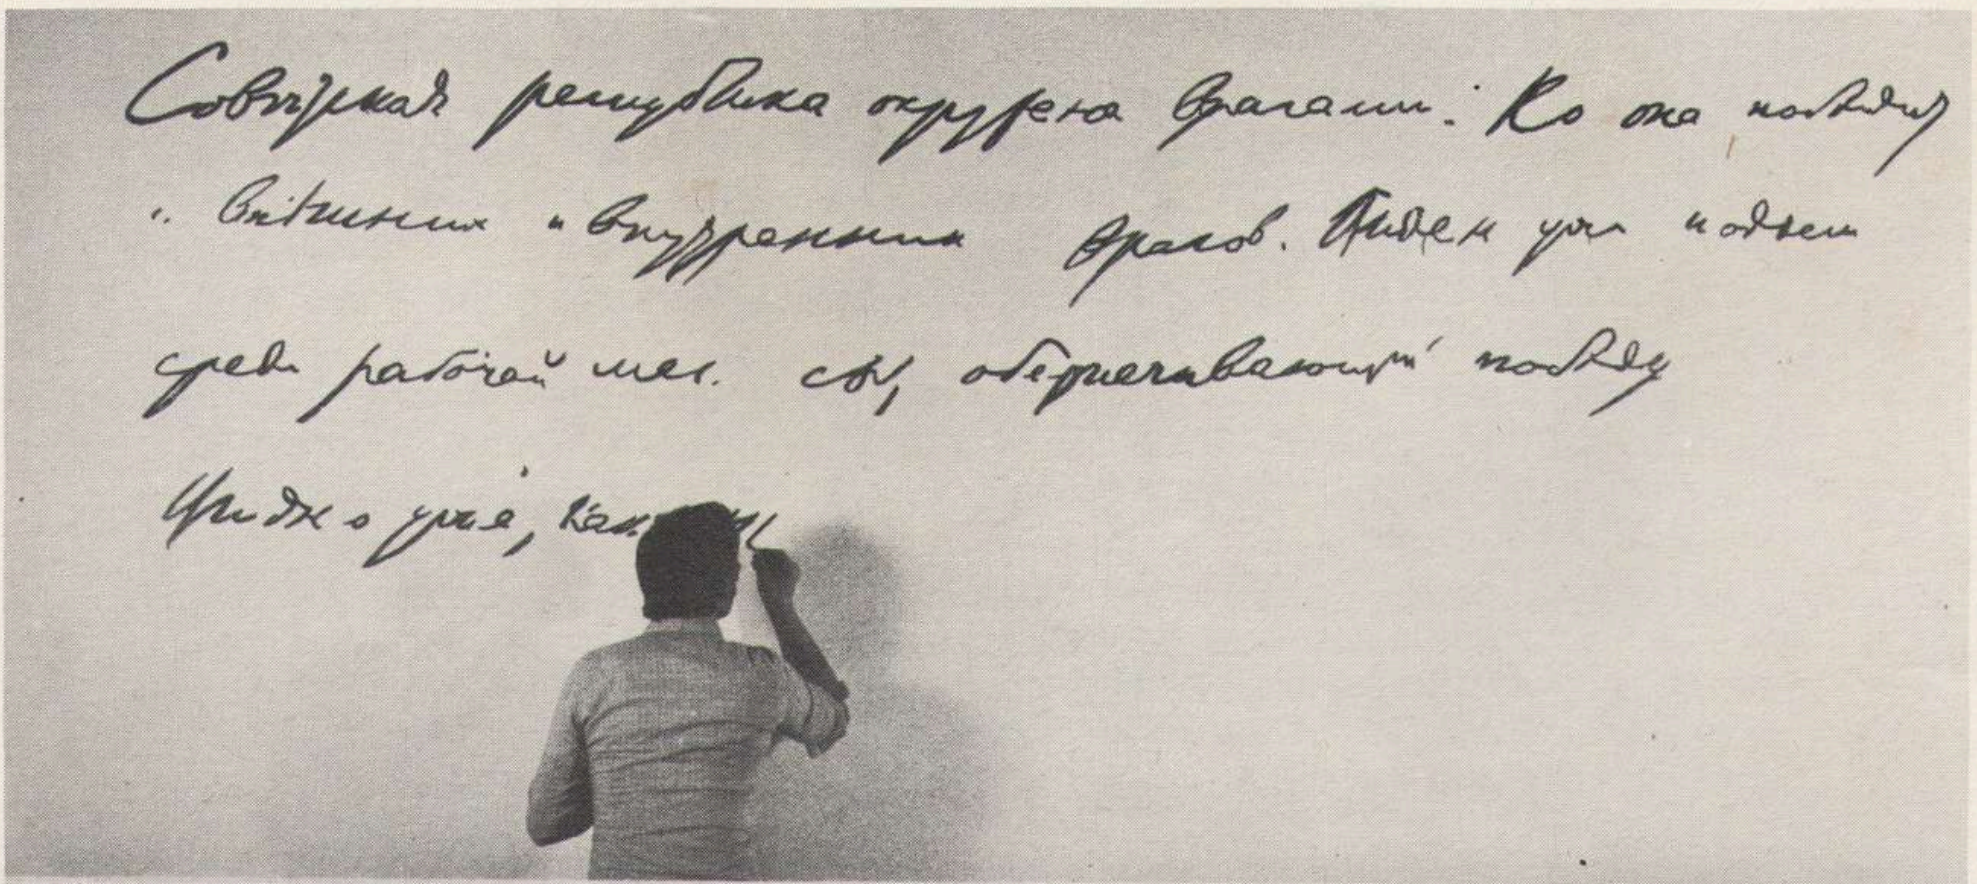 Советская республика окружена врагами. Но она победит
и внешних и внутренних врагов. Виден уже подъем
среди рабочей мас. сы, обеспечивающий победу